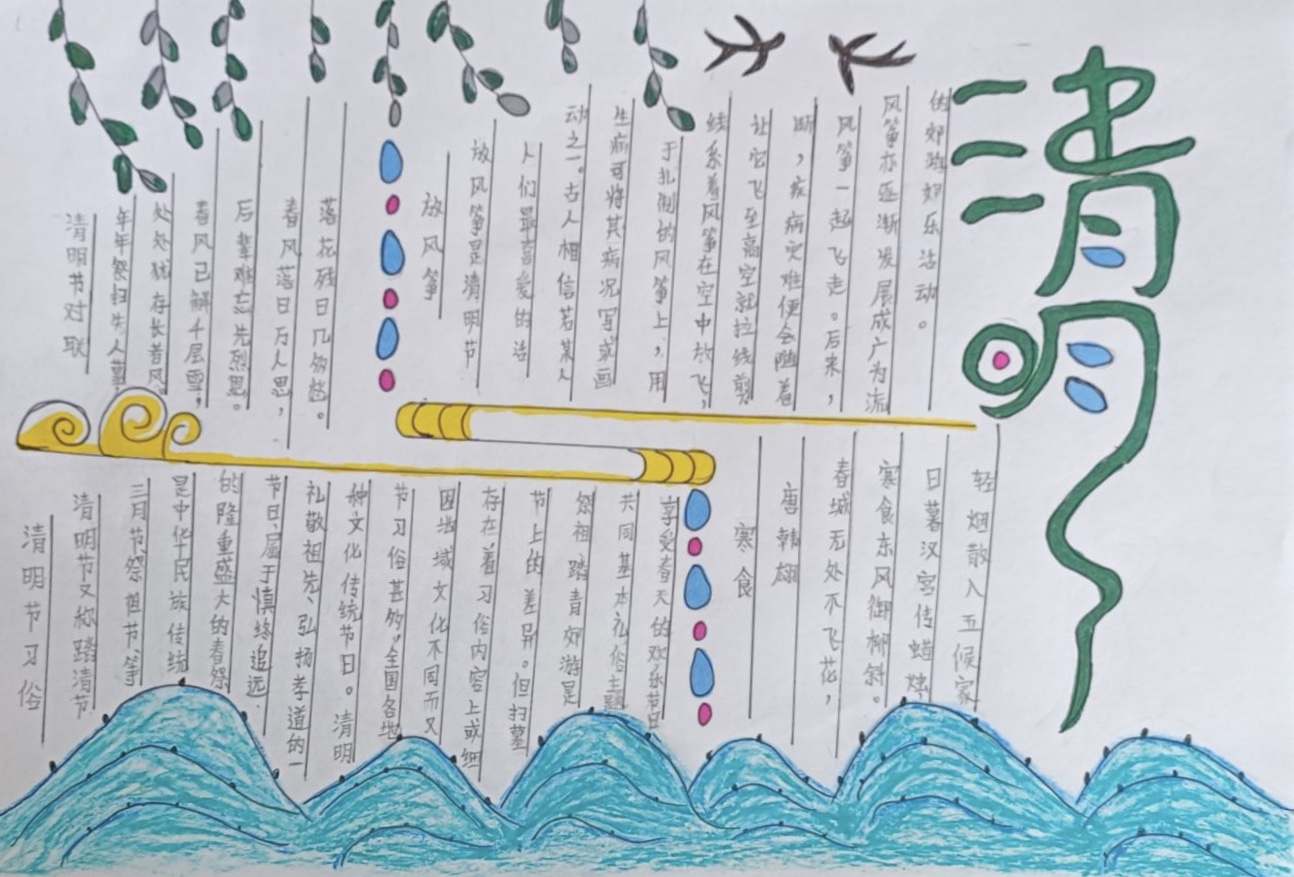 清明
清明节对联
年年祭扫先人墓,
处处犹存长者风。
春风已解千层雪,
后辈难忘先烈恩。
春风落日万人思,
落花残日几多愁。
放风筝
放风筝是清明节
人们最喜爱的活
动之一。古人相信若某人
生病可将其病况写或画
于扎制的风筝上,用
线系着风筝在空中放飞,
让它飞至高空就拉线剪
断,疾病灾难便会随着
风筝一起飞走。后来,
风筝亦逐渐发展成广为流
的郊游娱乐活动。
清明节习俗
清明节又称踏清节
三月节祭祖节、等
是中华民族传统
的隆重盛大的春祭
节日,属于慎终追远、
礼敬祖先、弘扬孝道的一
种文化传统节日。清明
节习俗甚多,全国各地
因地域文化不同而又
存在着习俗内容上或细
节上的差异。但扫墓
祭祖踏青郊游是
共同基本礼俗主题
享受春天的欢乐节日
寒食
唐韩翃
春城无处不飞花,
寒食东风御柳斜。
日暮汉宫传蜡烛
轻烟散入五候家